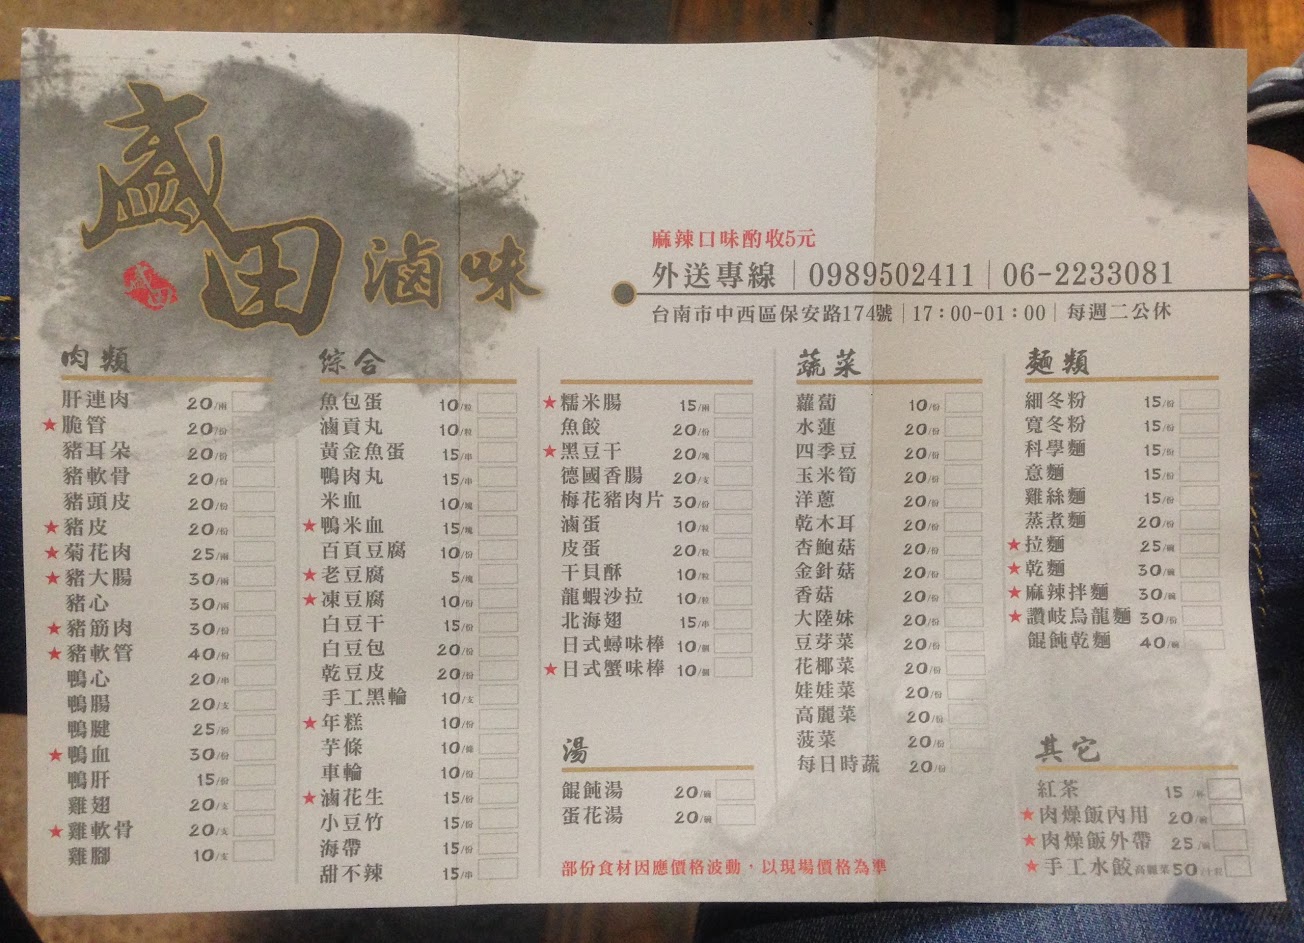 盛田滷味
盛田
麻辣口味酌收5元
外送專線｜0989502411｜06-2233081
台南市中西區保安路174號｜17：00-01：00｜每週二公休
肉類
肝連肉 20/兩
★脆管 20/份
豬耳朵 20/份
豬軟骨 20/份
豬頭皮 20/份
★豬皮 20/份
★菊花肉 25/兩
★豬大腸 30/兩
豬心 30/兩
★豬筋肉 30/份
★豬軟管 40/份
鴨心 20/串
鴨腸 20/支
鴨腱 25/份
★鴨血 30/份
鴨肝 15/份
雞翅 20/支
★雞軟骨 20/支
雞腳 10/支
綜合
魚包蛋 10/粒
滷貢丸 10/粒
黃金魚蛋 15/串
鴨肉丸 15/串
米血 10/塊
★鴨米血 15/塊
百頁豆腐 10/份
★老豆腐 5/塊
★凍豆腐 10/份
白豆干 15/份
白豆包 20/份
乾豆皮 20/份
手工黑輪 10/支
★年糕 10/份
芋條 10/條
車輪 10/份
★滷花生 15/份
小豆竹 15/份
海帶 15/份
甜不辣 15/串
★糯米腸 15/兩
魚餃 20/份
★黑豆干 20/塊
德國香腸 20/支
梅花豬肉片 30/份
滷蛋 10/粒
皮蛋 20/粒
干貝酥 10/粒
龍蝦沙拉 10/粒
北海翅 15/串
日式蟳味棒 10/個
★日式蟹味棒 10/個
湯
餛飩湯 20/碗
蛋花湯 20/碗
部份食材因應價格波動，以現場價格為準
蔬菜
蘿蔔 10/份
水蓮 20/份
四季豆 20/份
玉米筍 20/份
洋蔥 20/份
乾木耳 20/份
杏鮑菇 20/份
金針菇 20/份
香菇 20/份
大陸妹 20/份
豆芽菜 20/份
花椰菜 20/份
娃娃菜 20/份
高麗菜 20/份
菠菜 20/份
每日時蔬 20/份
麵類
細冬粉 15/份
寬冬粉 15/份
科學麵 15/份
意麵 15/份
雞絲麵 15/份
蒸煮麵 20/份
★拉麵 25/碗
★乾麵 30/碗
★麻辣拌麵 30/碗
★讚岐烏龍麵 30/份
餛飩乾麵 40/碗
其它
紅茶 15/杯
★肉燥飯內用 20/碗
★肉燥飯外帶 25/碗
★手工水餃高麗菜 50/十粒